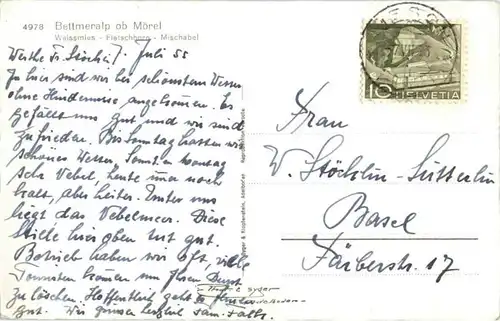 4978 Bettmeralp ob Mörel
Weissmies - Fletschhorn - Mischabel
7. Juli 55
Werthe Fr. Stöcklin
Ja hier sind wir bei schönstem Wetter
ohne Hindernisse angekommen. Es
gefällt uns gut und wir sind
zufrieden. Bis Sonntag hatten wir
schönes Wetter, Sonntag
sehr Nebel, heute immer noch
kalt, aber heiter. Unter uns
liegt das Nebelmeer. Diese
Stille hier oben tut gut.
Betrieb haben wir oft, viele
Touristen kommen um Ihren Durst
zu löschen. Hoffentlich geht es Ihnen
gut. Wir grüssen herzlich Fam.
10 HELVETIA
Frau
W. Stöcklin-Sütterlin
Basel
Färberstr. 17